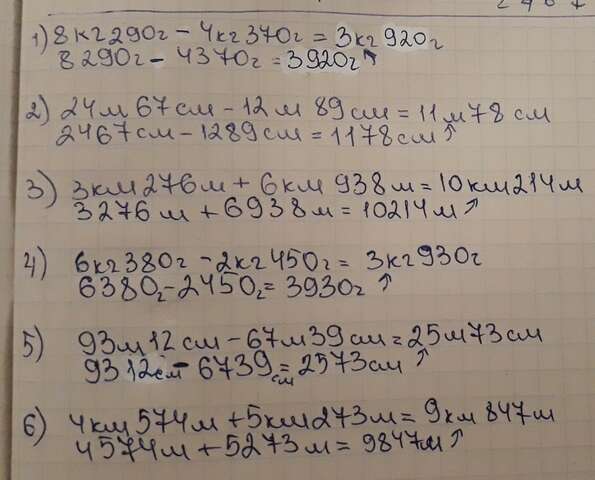 1) 8 кг 290г - 4кг 370г = 3кг 920г
8 290г - 4370г = 3920г
2) 24м 67см - 12 м 89см = 11м78 см
2467см - 1289см = 1178см
3) 3км 276м + 6км 938м = 10км214м
3276м + 6938м = 10214м
4) 6кг380г - 2кг450г = 3кг930г
6380г - 2450г = 3930г
5) 93м12см - 67м39см = 25м73см
9312см - 6739см = 2573см
6) 4км574м + 5км273м = 9км 847м
4574м + 5273м = 9847м